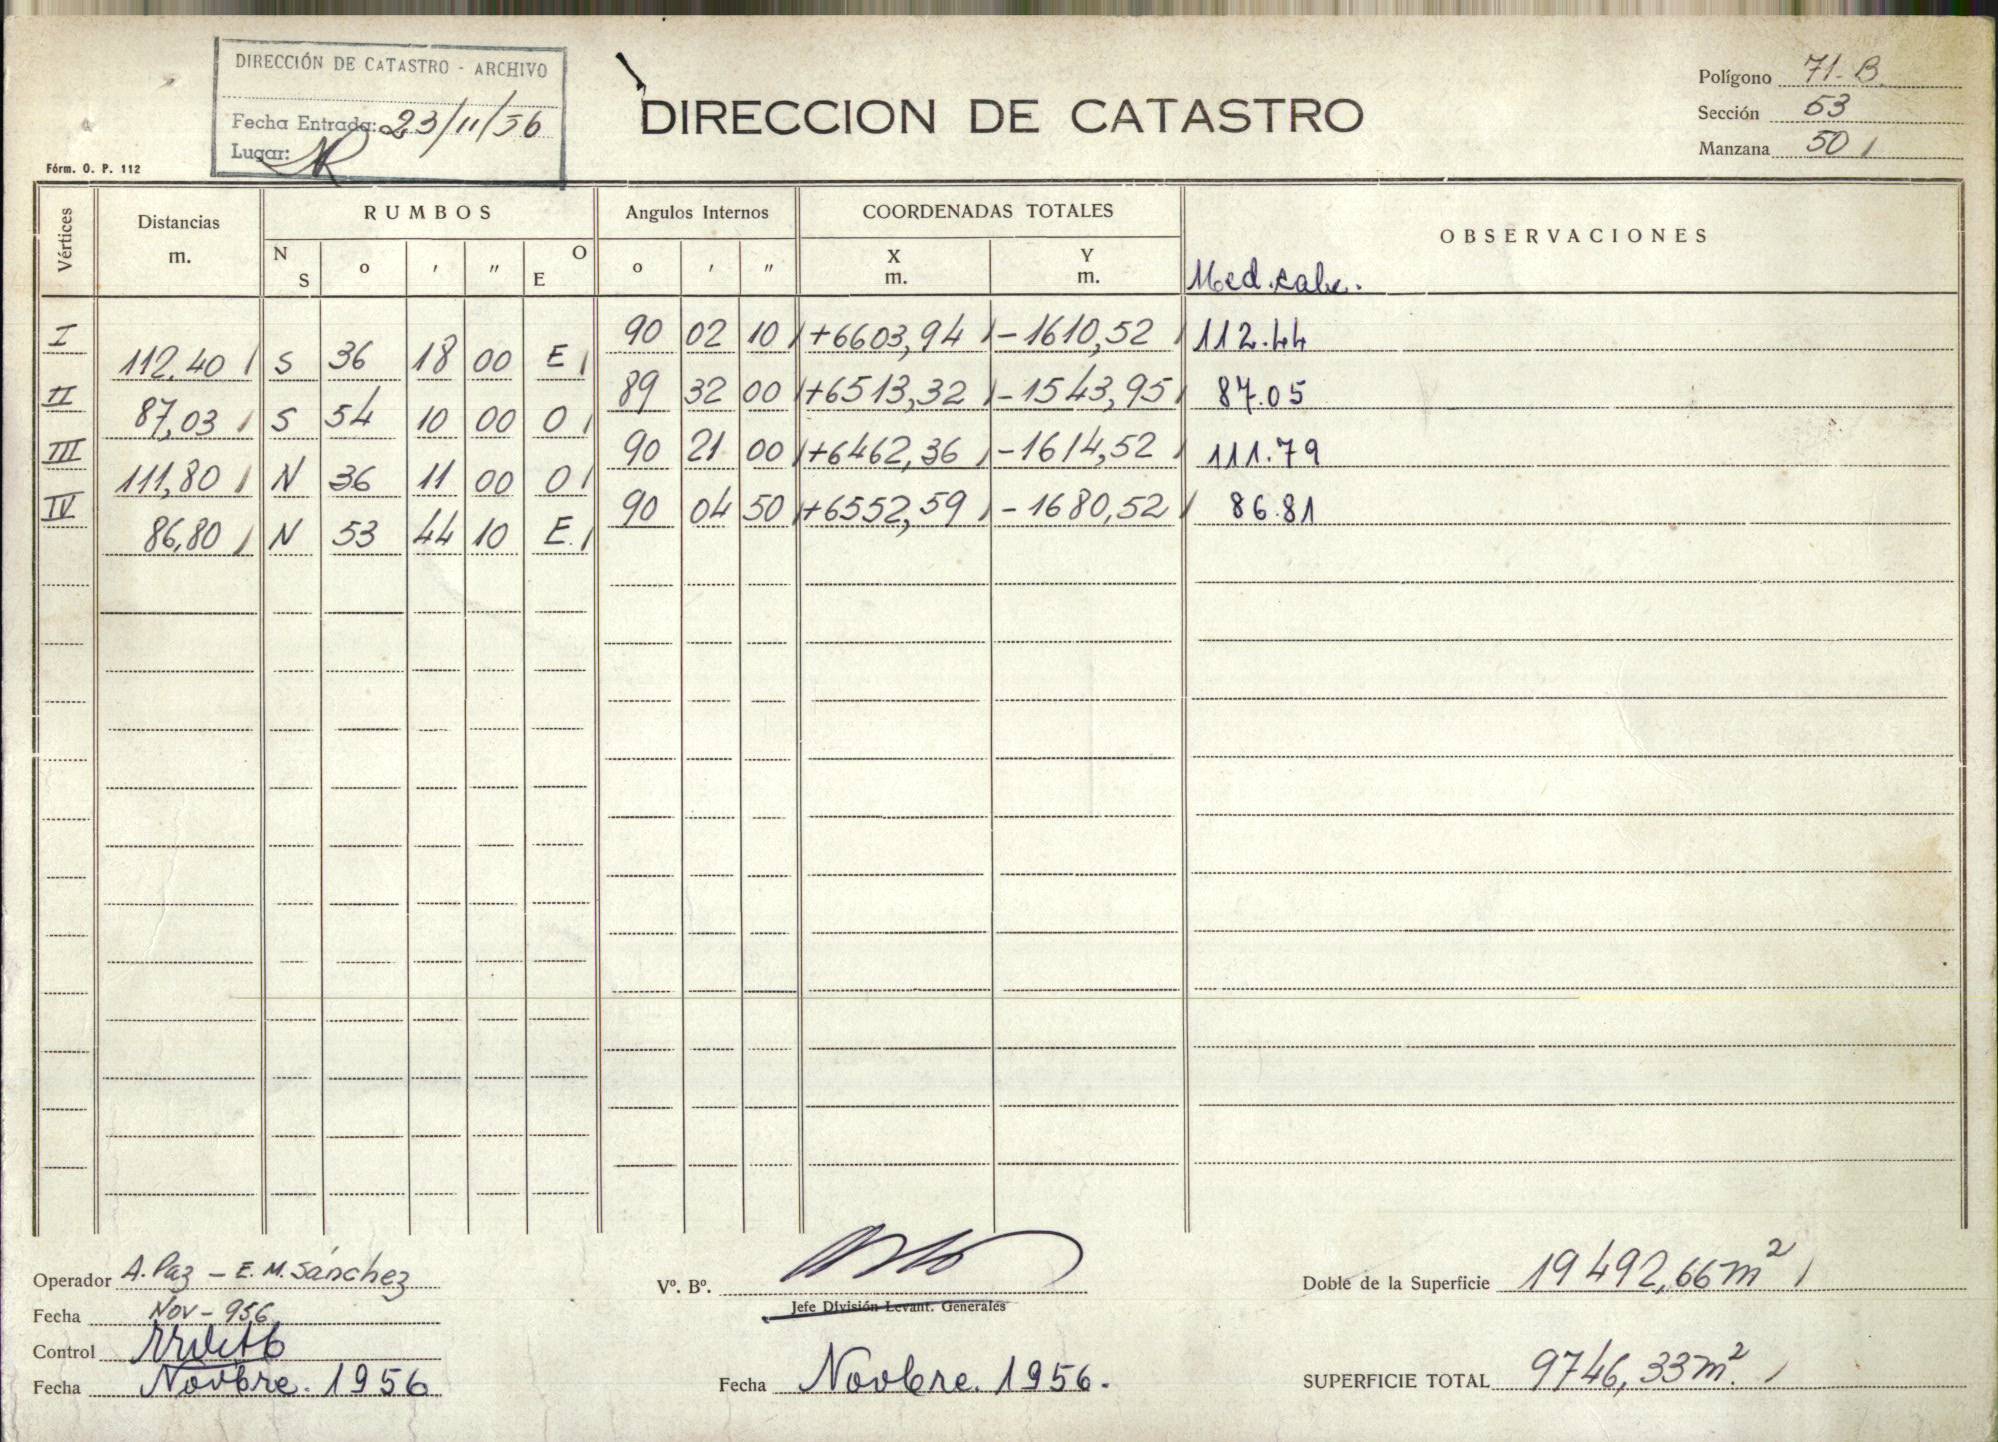 DIRECCIÓN DE CATASTRO - ARCHIVO
Fecha Entrada: 23/11/56
Lugar:
DIRECCION DE CATASTRO
Polígono 71-B
Sección 53
Manzana 50
Fórm. O. P. 112
Vértices Distancias m. RUMBOS Angulos Internos COORDENADAS TOTALES OBSERVACIONES
N S o ′ ″ O E o ′ ″ X m. Y m. Med. calc.
I 90 02 10 +6603,94 -1610,52 112.44
112,40 S 36 18 00 E
II 89 32 00 +6513,32 -1543,95 87.05
87,03 S 54 10 00 O
III 90 21 00 +6462,36 -1614,52 111.79
111,80 N 36 11 00 O
IV 90 04 50 +6552,59 -1680,52 86.81
86,80 N 53 44 10 E.
Operador A. Paz - E. M. Sánchez
Fecha Nov - 956
Control
Fecha Novbre. 1956
Vº. Bº.
Jefe División Levant. Generales
Fecha Novbre. 1956.
Doble de la Superficie 19492,66 m²
SUPERFICIE TOTAL 9746,33 m².